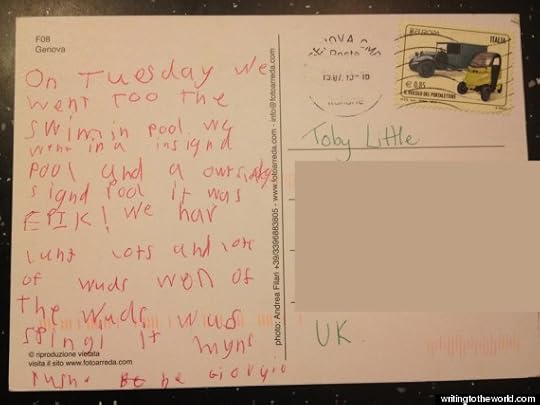 F08
Genova
On Tuesday We
went Too the
swimin pool. we
went in a insignd
Pool and a
signd Pool it was
EPIK! We hav
lunt lots and lots
of wuds won of
The wuds wus
spingi it myns
he Giorgio
© riproduzione vietata
visita il sito www.fotoarreda.com
photo: Andrea Filari +39/3396883805 - www.fotoarreda.com - info@fotoarreda.com
EUROPA
ITALIA
€ 0,85
IL VEICOLO DEL PORTALETTERE
Toby Little
UK
writingtotheworld.com